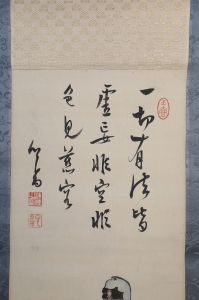 一切有法皆
虚妄非空非
色見慈容